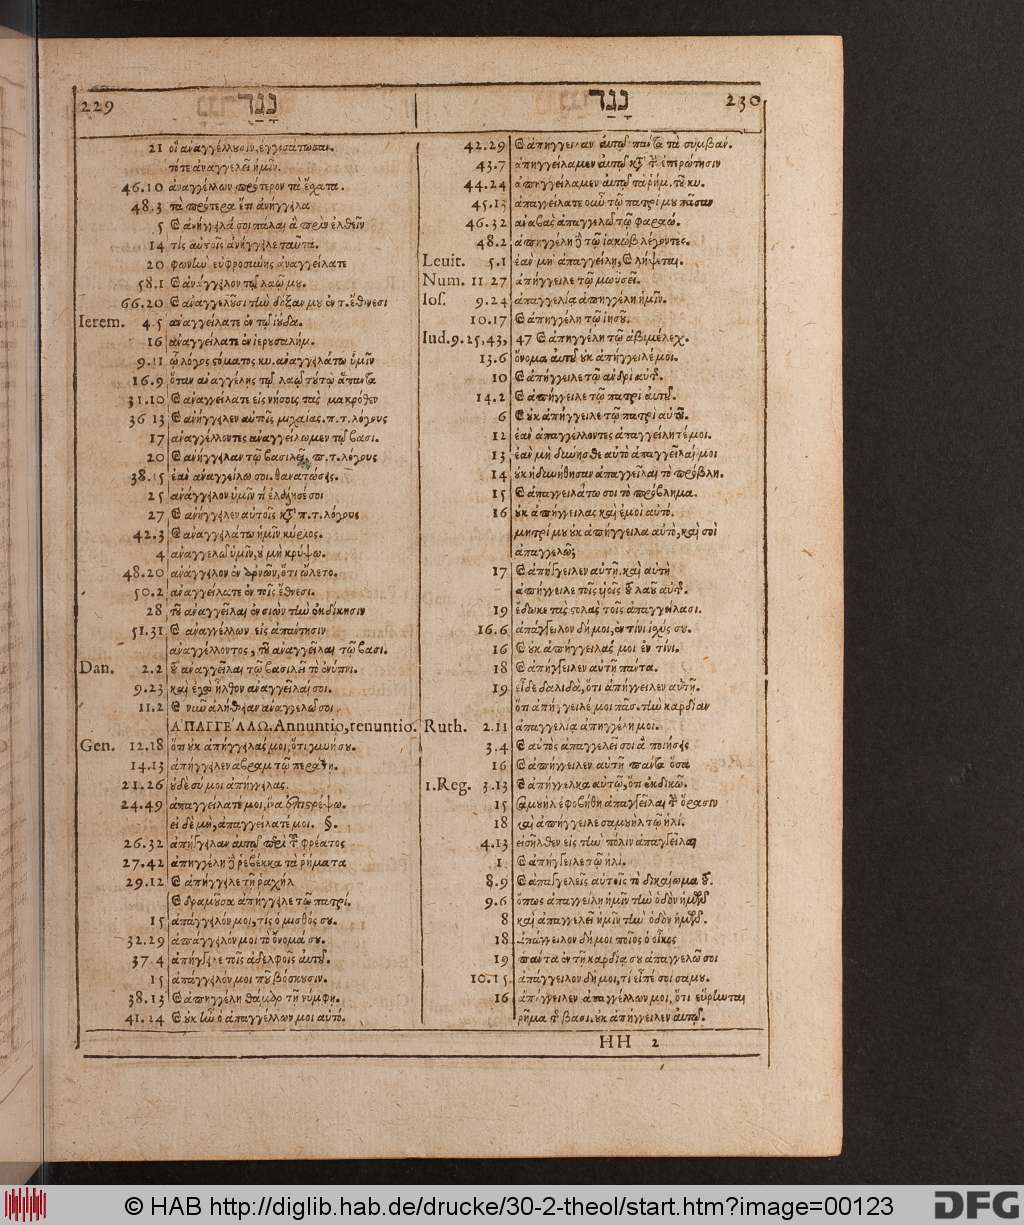 229 נָגַד
21 οἳ ἀναγγέλλουσιν, ἐγγισάτωσαν.
τότε ἀναγγελεῖ ἡμῖν.
46.10 ἀναγγέλλων πρότερον τὰ ἔσχατα.
48.3 τὰ πρότερα ἔτι ἀνήγγειλα
5 καὶ ἀνήγγειλά σοι πάλαι ἃ πρὶν ἐλθεῖν
14 τίς αὐτοῖς ἀνήγγειλε ταῦτα.
20 φωνὴν εὐφροσύνης ἀναγγείλατε
58.1 καὶ ἀνάγγειλον τῷ λαῷ μου.
66.20 καὶ ἀναγγελοῦσι τὴν δόξαν μου ἐν τ. ἔθνεσι
Ierem. 4.5 ἀναγγείλατε ἐν τῷ ἰούδα.
16 ἀναγγείλατε ἐν ἱερουσαλήμ.
9.11 ᾧ λόγος στόματος κυ. ἀναγγειλάτω ὑμῖν
16.9 ὅταν ἀναγγείλῃς τῷ λαῷ τούτῳ ἅπαντα
31.10 καὶ ἀναγγείλατε εἰς νήσους τὰς μακρόθεν
36 13 καὶ ἀνήγγειλεν αὐτοῖς μιχαίας. π. τ. λόγους
17 ἀναγγέλλοντες ἀναγγείλωμεν τῷ βασι.
20 καὶ ἀνήγγειλαν τῷ βασιλεῖ, π. τ. λόγους
38.15 ἐὰν ἀναγγείλω σοι. θανατώσεις.
25 ἀνάγγειλον ἡμῖν τί ἐλάλησέ σοι
27 καὶ ἀνήγγειλεν αὐτοῖς κατὰ π. τ. λόγους
42.3 καὶ ἀναγγειλάτω ἡμῖν κύριος.
4 ἀναγγελῶ ὑμῖν, οὐ μὴ κρύψω.
48.20 ἀνάγγειλον ἐν ἀρνῶν, ὅτι ὤλετο.
50.2 ἀναγγείλατε ἐν τοῖς ἔθνεσι.
28 τοῦ ἀναγγεῖλαι ἐν σιὼν τὴν ἐκδίκησιν
51.31 καὶ ἀναγγέλλων εἰς ἀπάντησιν
ἀναγγέλλοντος, τοῦ ἀναγγεῖλαι τῷ βασι.
Dan. 2.2 τοῦ ἀναγγεῖλαι τῷ βασιλεῖ τὸ ἐνύπνι.
9.23 καὶ ἐγὼ ἦλθον ἀναγγεῖλαί σοι.
11.2 καὶ νῦν ἀλήθειαν ἀναγγελῶ σοι
ἈΠΑΓΓΕΛΛΩ. Annuntio, renuntio.
Gen. 12.18 ὅτι οὐκ ἀπήγγειλάς μοι, ὅτι γυνή σου.
14.13 ἀπήγγειλεν ἄβραμ τῷ περάτῃ.
21.26 οὐδὲ σύ μοι ἀπήγγειλας.
24.49 ἀπαγγείλατέ μοι, ἵνα ἐπιστρέψω.
εἰ δὲ μὴ, ἀπαγγείλατέ μοι. §.
26.32 ἀπήγγειλαν αὐτῷ περὶ τοῦ φρέατος
27.42 ἀπηγγέλη δὲ ῥεβέκκα τὰ ῥήματα
29.12 καὶ ἀπήγγειλε τῇ ῥαχὴλ
καὶ δραμοῦσα ἀπήγγειλε τῷ πατρί.
15 ἀπάγγειλόν μοι, τίς ὁ μισθός σου.
32.29 ἀπάγγειλόν μοι τὸ ὄνομά σου.
37.4 ἀπήγγειλε τοῖς ἀδελφοῖς αὐτοῦ.
15 ἀπάγγειλόν μοι ποῦ βόσκουσιν.
38.13 καὶ ἀπηγγέλη θάμαρ τῇ νύμφῃ.
41.24 καὶ οὐκ ἦν ὁ ἀπαγγέλλων μοι αὐτό.
נָגַד 230
42.29 καὶ ἀπήγγειλαν αὐτῷ πάντα τὰ συμβάν.
43.7 ἀπηγγείλαμεν αὐτῷ κατὰ τὴν ἐπερώτησιν
44.24 ἀπηγγείλαμεν αὐτῷ τὰ ῥήμ. τοῦ κυ.
45.13 ἀπαγγείλατε οὖν τῷ πατρί μου πᾶσαν
46.32 ἀναβὰς ἀπαγγελῶ τῷ φαραώ.
48.2 ἀπηγγέλη δὲ τῷ ἰακὼβ λέγοντες.
Leuit. 5.1 ἐὰν μὴ ἀπαγγείλῃ, καὶ λήψεται.
Num. 11 27 ἀπήγγειλε τῷ μωϋσεῖ.
Ios. 9.24 ἀπαγγελίᾳ ἀπηγγέλη ἡμῖν.
10.17 καὶ ἀπηγγέλη τῷ ἰησοῦ.
Iud. 9.25, 43, 47 καὶ ἀπηγγέλη τῷ ἀβιμέλεχ.
13.6 ὄνομα αὐτοῦ οὐκ ἀπήγγειλέ μοι.
10 καὶ ἀπήγγειλε τῷ ἀνδρὶ αὐτῆς.
14.2 καὶ ἀπήγγειλε τῷ πατρὶ αὐτοῦ.
6 καὶ οὐκ ἀπήγγειλε τῷ πατρὶ αὐτοῦ.
12 ἐὰν ἀπαγγέλλοντες ἀπαγγείλητέ μοι.
13 ἐὰν μὴ δύνησθε αὐτὸ ἀπαγγεῖλαί μοι
14 οὐκ ἠδυνήθησαν ἀπαγγεῖλαι τὸ πρόβλη.
15 καὶ ἀπαγγειλάτω σοι τὸ πρόβλημα.
16 οὐκ ἀπήγγειλας καὶ ἐμοὶ αὐτό.
μητρί μου οὐκ ἀπήγγειλα αὐτὸ, καὶ σοὶ
ἀπαγγελῶ;
17 καὶ ἀπήγγειλεν αὐτῇ. καὶ αὐτὴ
ἀπήγγειλε τοῖς υἱοῖς τοῦ λαοῦ αὐτῆς.
19 ἔδωκε τὰς στολὰς τοῖς ἀπαγγείλασι.
16.6 ἀπάγγειλον δή μοι, ἐν τίνι ἰσχύς σου.
16 καὶ οὐκ ἀπήγγειλάς μοι ἐν τίνι.
18 καὶ ἀπήγγειλεν αὐτῇ πάντα.
19 εἶδε δαλιδὰ, ὅτι ἀπήγγειλεν αὐτῇ.
ὅτι ἀπήγγειλέ μοι πᾶσ. τὴν καρδίαν
Ruth. 2.11 ἀπαγγελίᾳ ἀπηγγέλη μοι.
3.4 καὶ αὐτὸς ἀπαγγελεῖ σοι ἃ ποιήσεις
16 καὶ ἀπήγγειλεν αὐτῇ πάντα ὅσα
1.Reg. 3.13 καὶ ἀπήγγελκα αὐτῷ, ὅτι ἐκδικῶ.
15 σαμουὴλ ἐφοβήθη ἀπαγγεῖλαι τὴν ὅρασιν
18 καὶ ἀπήγγειλε σαμουὴλ τῷ ἠλί.
4.13 εἰσῆλθεν εἰς τὴν πόλιν ἀπαγγεῖλαι
1 καὶ ἀπήγγειλε τῷ ἠλί.
8.9 καὶ ἀπαγγελεῖς αὐτοῖς τὸ δικαίωμα τοῦ.
9.6 ὅπως ἀπαγγείλῃ ἡμῖν τὴν ὁδὸν ἡμῶν.
8 καὶ ἀπαγγελεῖ ἡμῖν τὴν ὁδὸν ἡμῶν.
18 ἀπάγγειλον δή μοι ποῖος ὁ οἶκος
19 πάντα ἐν τῇ καρδίᾳ σου ἀπαγγελῶ σοι
10.15 ἀπάγγειλον δή μοι, τί εἶπέ σοι σαμου.
16 ἀπήγγειλεν ἀπαγγέλλων μοι, ὅτι εὕρηνται
ῥῆμα τῆς βασι. οὐκ ἀπήγγειλεν αὐτῷ.
HH 2
© HAB http://diglib.hab.de/drucke/30-2-theol/start.htm?image=00123
DFG